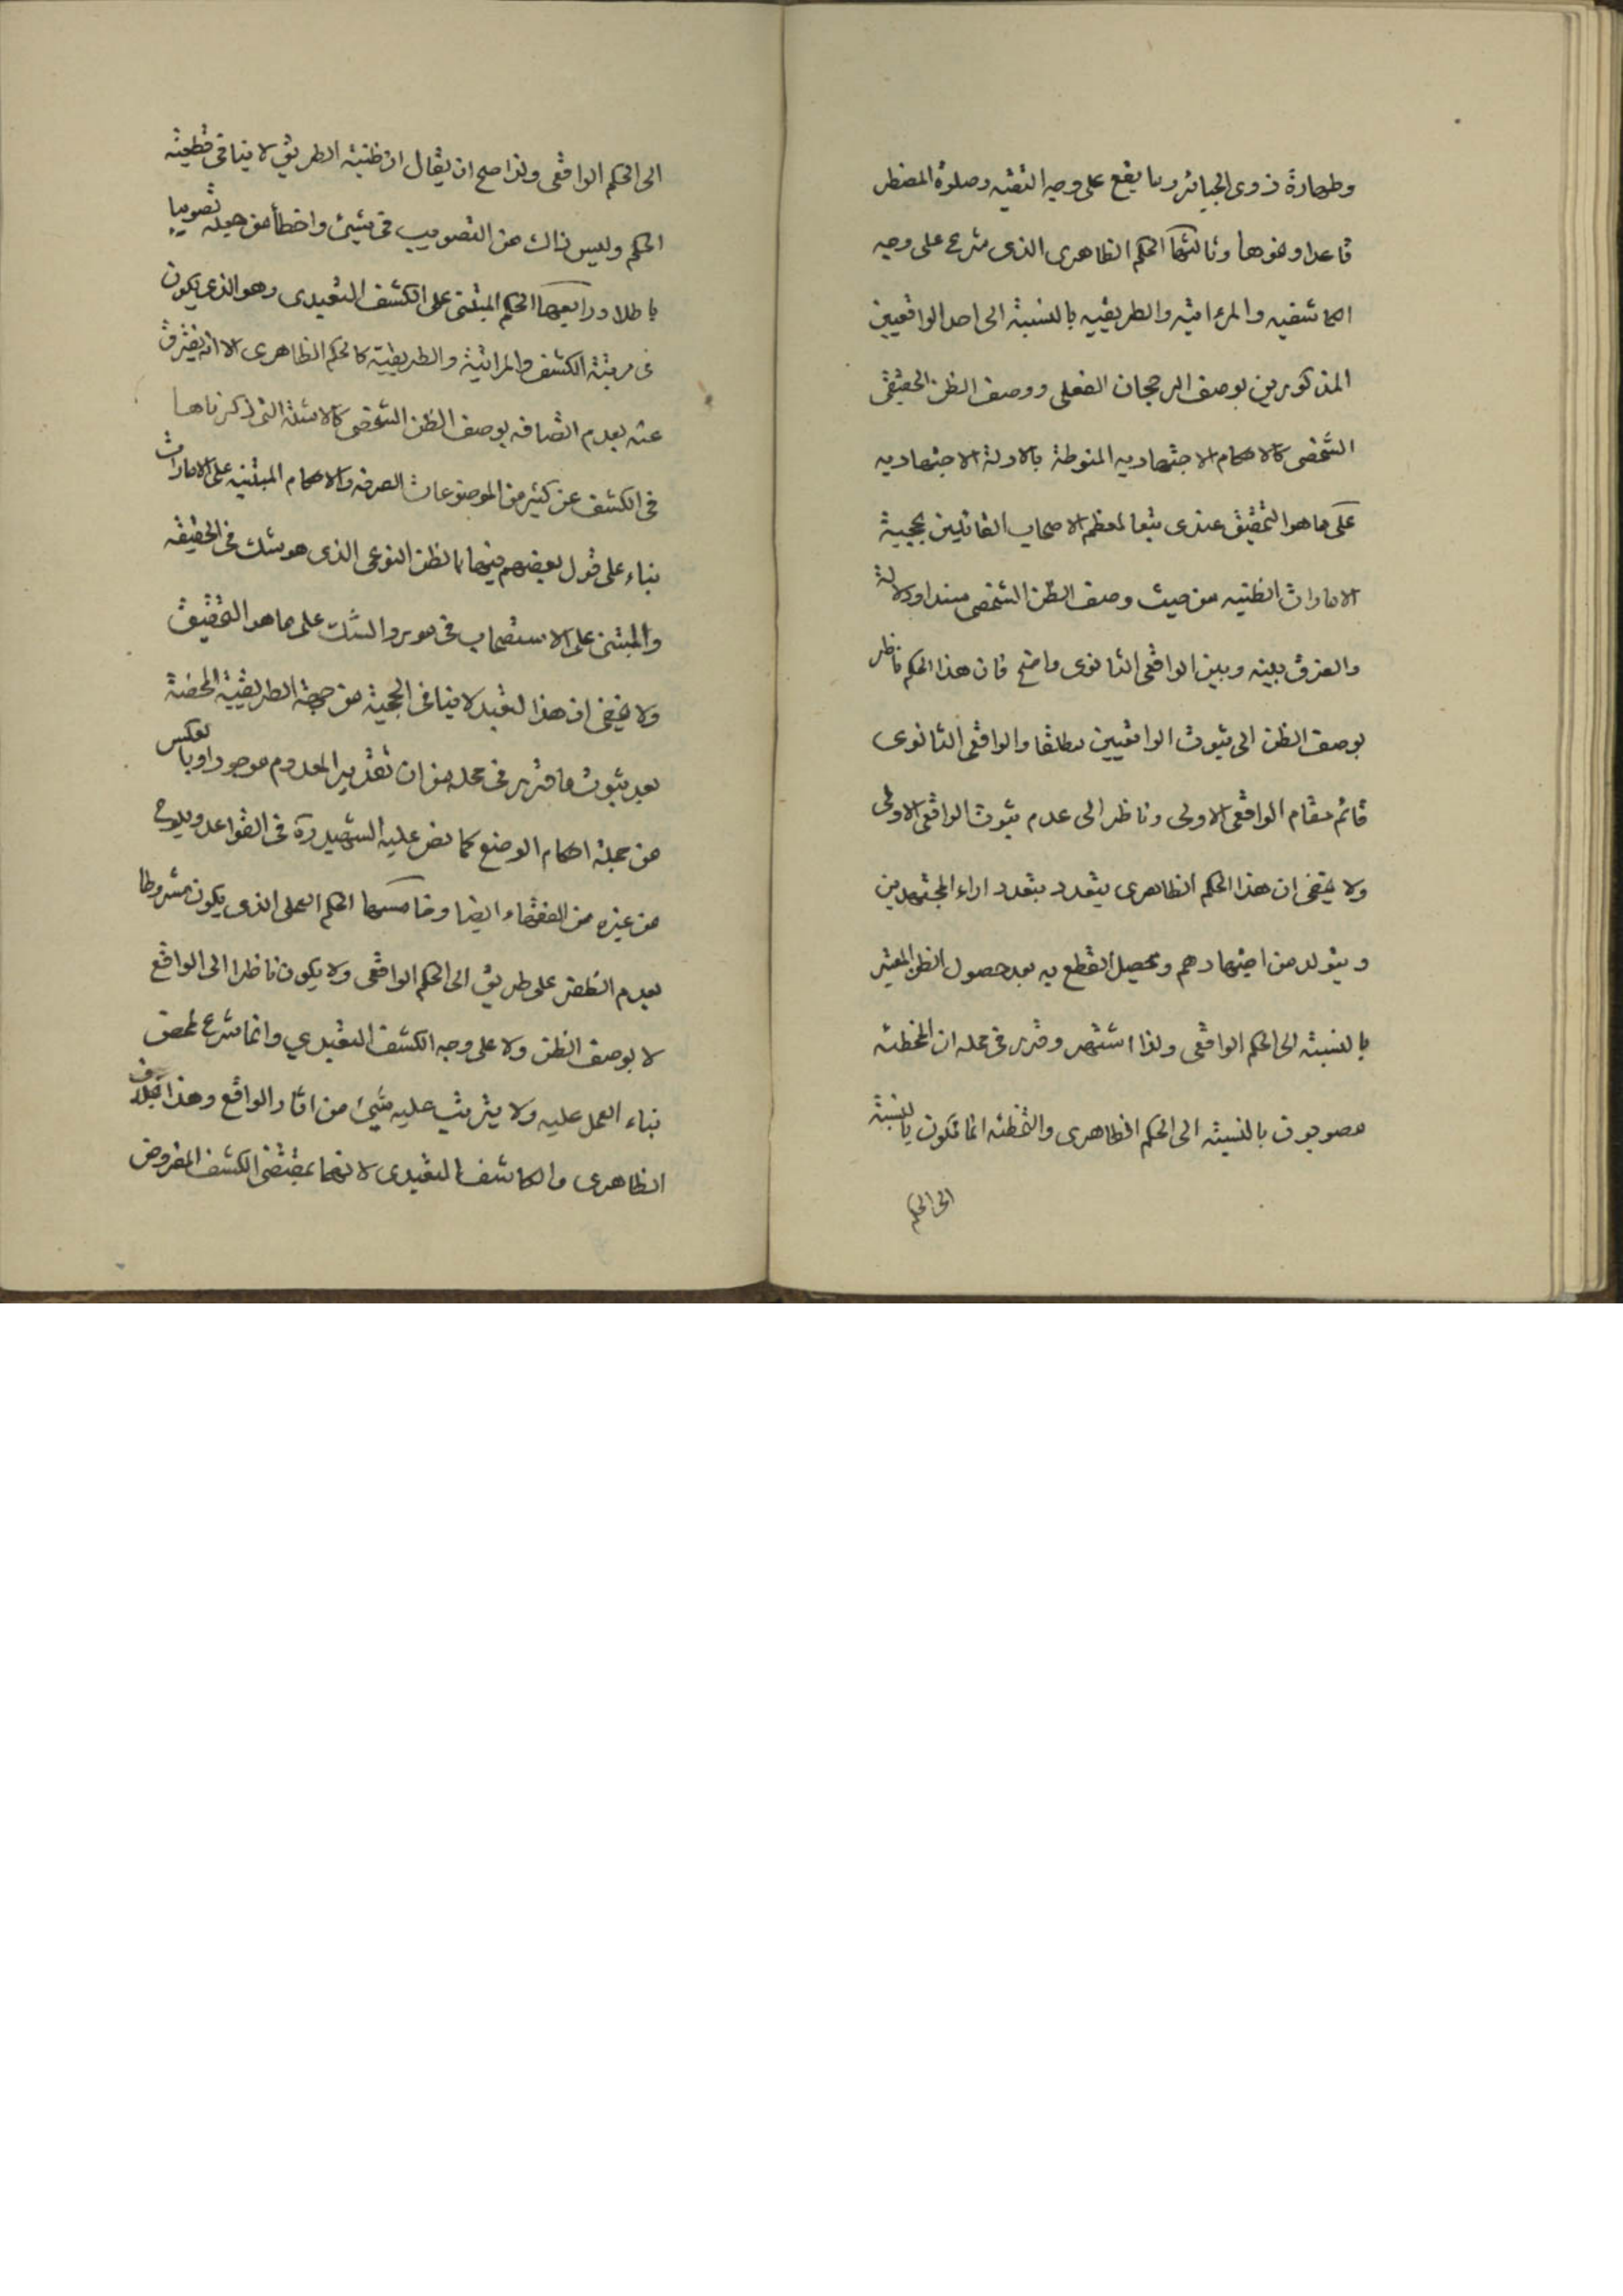 وطهارة ذوى الجبائر وما يقع على وجه التقيه وصلوة المضطر
قاعدا ونحوها وثالثها الحكم الظاهرى الذى شرع على وجه
الكاشفيه والمرءاتيه والطريقيه بالنسبة الى احد الواقعيين
المذكورين بوصف الرجحان الفعلى ووصف الظن الحقيقى
الشخصى كالاحكام الاجتهاديه المنوطة بالادلة الاجتهاديه
على ما هو التحقيق عندى تبعا لمعظم الاصحاب القائلين بحجية
الامارات الظنيه من حيث وصف الظن الشخصى سندا ودلالة
والفرق بينه وبين الواقعى الثانوى واضح فان هذا الحكم ناظر
بوصف الظن الى ثبوت الواقعيين مطلقا والواقعى الثانوى
قائم مقام الواقعى الاولى وناظر الى عدم ثبوت الواقعى الاولى
ولا يخفى ان هذا الحكم الظاهرى يتعدد بتعدد اراء المجتهدين
ويتولد من اجتهادهم ويحصل القطع به بعد حصول الظن المعتبر
بالنسبة الى الحكم الواقعى ولذا اشتهر وقرر فى محله ان المخطئه
مصوبون بالنسبة الى الحكم الظاهرى والتخطئه انما تكون بالنسبة
الى الحكم
الى الحكم الواقعى ولذا صح ان يقال ان ظنية الطريق لا ينافى قطعية
الحكم وليس ذاك من التصويب فى شيئ واخطأ من جعله تصويبا
باطلا ورابعها الحكم المبتنى على الكشف التعبدى وهو الذى يكون
فى مرتبة الكشف والمرائتية والطريقية كالحكم الظاهرى الا انه يفترق
عنه بعدم اتصافه بوصف الظن الشخصى كالامثلة التى ذكرناها
فى الكشف عن كثير من الموضوعات الصرفه والاحكام المبتنيه على الامارات
بناء على قول بعضهم فيها بالظن النوعى الذى هو شك فى الحقيقه
والمبتنى على الاستصحاب فى مورد الشك على ما هو التحقيق
ولا يخفى ان هذا التعبد لا ينافى الحجية من جهة الطريقية المحضة
بعد ثبوت ما قرر فى محله من ان تقدير المعدوم موجودا وبالعكس
من جملة احكام الوضع كما نص عليه الشهيد ره فى القواعد ويلوح
من غيره من الفقهاء ايضا وخامسها الحكم العملى الذى يكون مشروطا
بعدم الظفر على طريق الى الحكم الواقعى ولا يكون ناظرا الى الواقع
لا بوصف الظن ولا على وجه الكشف التعبدي وانما شرع لمحض
بناء العمل عليه ولا يترتب عليه شيئ من اثار الواقع وهذا بخلاف
الظاهرى والكاشف التعبدى لانهما بمقتضى الكشف المفروض